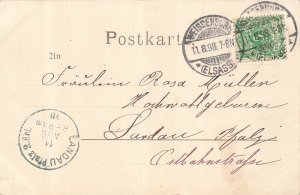 Postkarte
WEISSENBURG
11.8.98.7-8N.
* (ELSASS)
An
Fräulein Rosa Müller
Hochwohlgeboren
Landau Pfalz
Ostbahnstraße
LANDAU Pfalz 2.
11
AUG
98